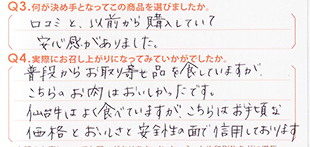 Q3.何が決め手となってこの商品を選びましたか。
口コミと、以前から購入していて
安心感がありました。
Q4.実際にお召し上がりになってみていかがでしたか。
普段からお取り寄せ品を食していますが、
こちらのお肉はおいしかったです。
仙台牛はよく食べていますが、こちらはお手頃な
価格とおいしさと安全性の面で信用しております